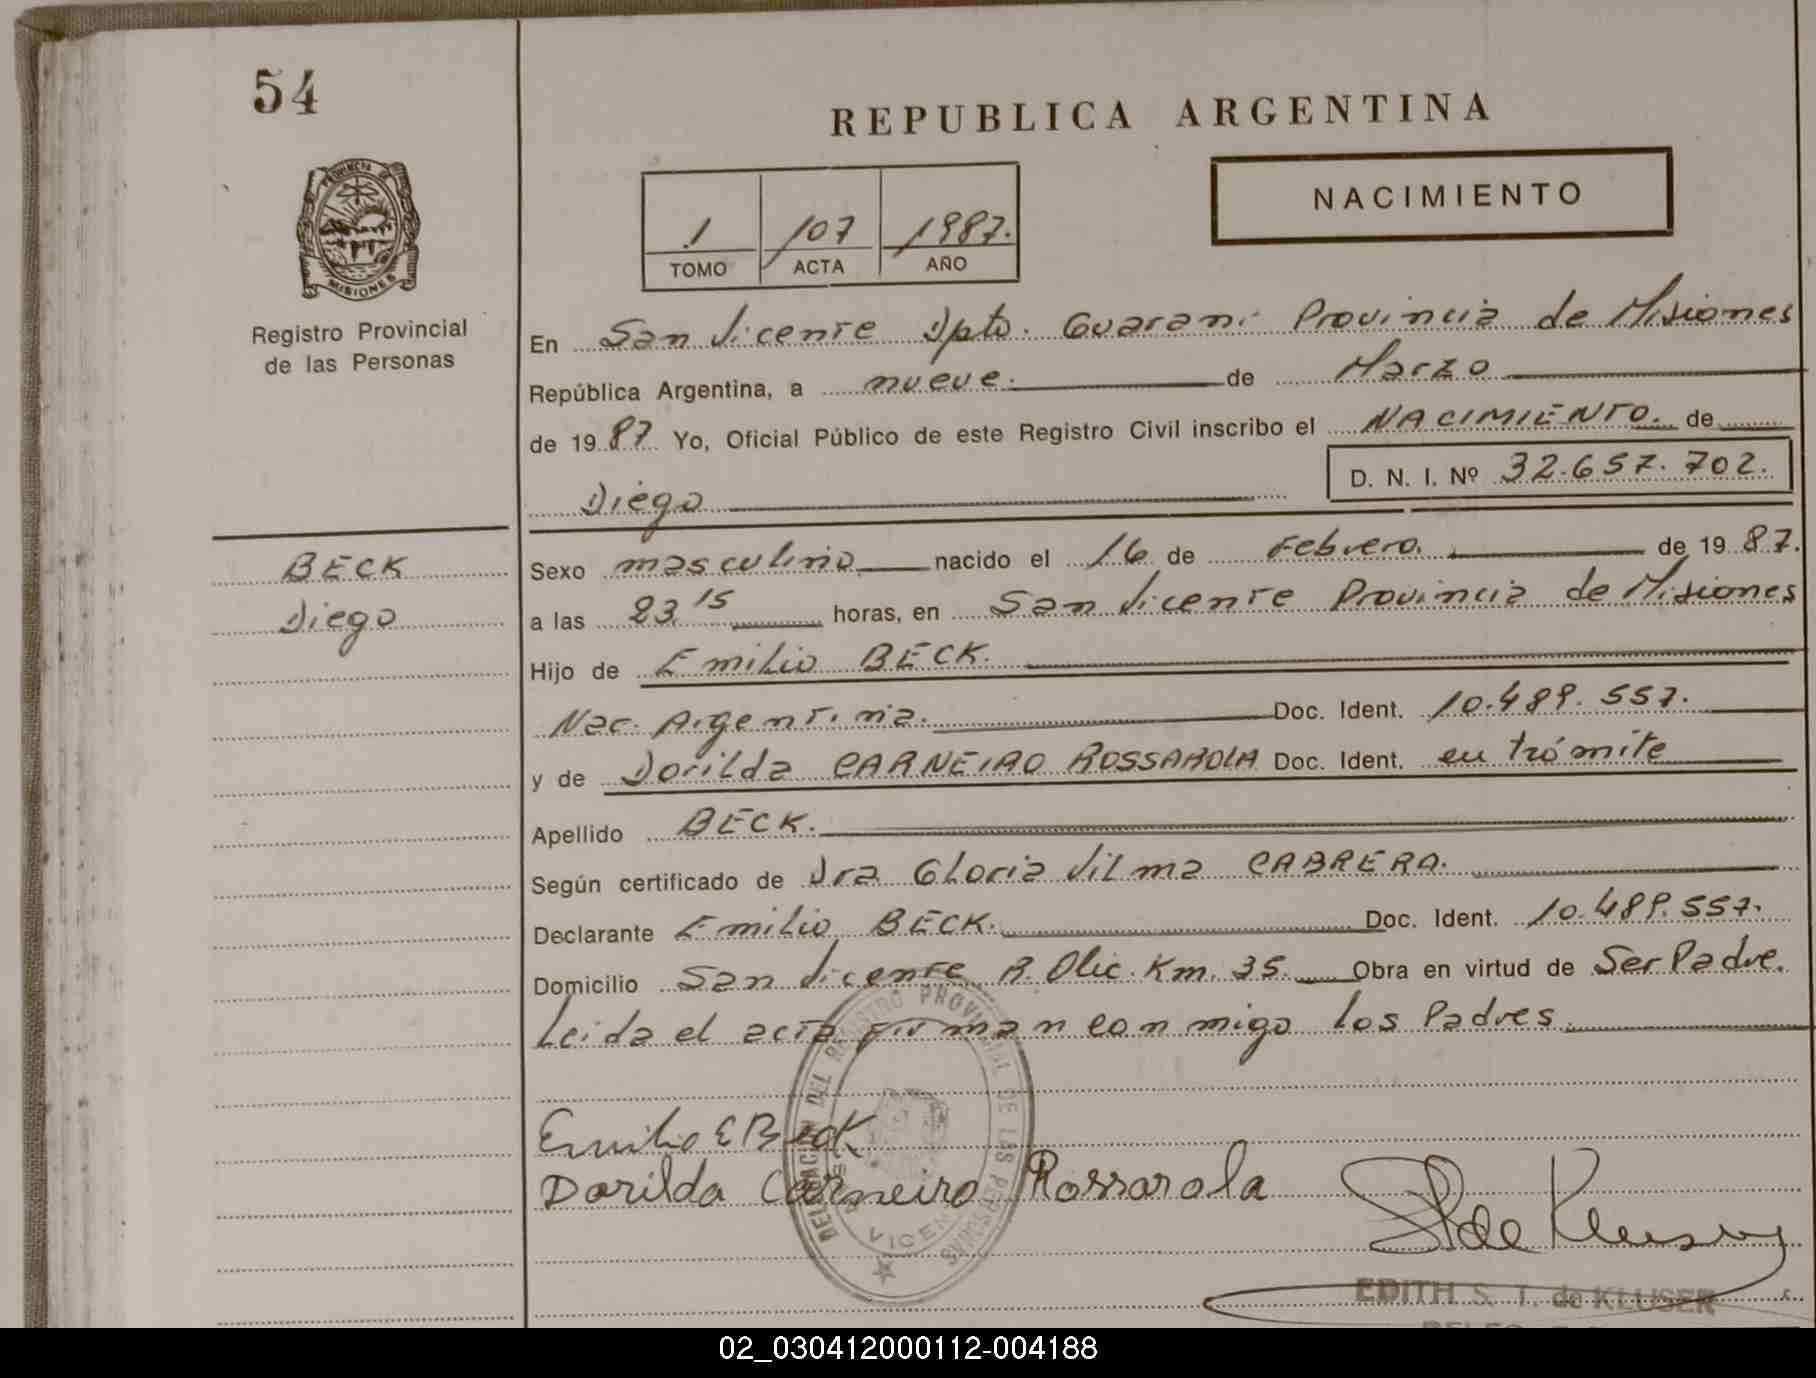 54
REPUBLICA ARGENTINA
NACIMIENTO
1 107 1987.
TOMO ACTA AÑO
PROVINCIA DE
MISIONES
Registro Provincial
de las Personas
En San Vicente Dpto. Guarani Provincia de Misiones
República Argentina, a nueve. de Marzo
de 1987 Yo, Oficial Público de este Registro Civil inscribo el NACIMIENTO. de
D. N. I. Nº 32.657.702.
Diego
BECK
Diego
Sexo masculino nacido el 16 de Febrero. de 1987.
a las 23,15 horas, en San Vicente Provincia de Misiones
Hijo de Emilio BECK.
Nac. Argentina. Doc. Ident. 10.489.557.
y de Dorilda CARNEIRO ROSSAROLA Doc. Ident. en trámite
Apellido BECK.
Según certificado de Dra Gloria Vilma CABRERA.
Declarante Emilio BECK. Doc. Ident. 10.489.557.
Domicilio San Vicente R. Olic. Km. 35. Obra en virtud de Ser Padre.
Leida el acta firman conmigo los Padres.
Emilio E Beck
Dorilda Carneiro Rossarola
DELEGACION DEL REGISTRO PROVINCIAL DE LAS PERSONAS
EDITH S. T. de KLUSER
02_030412000112-004188